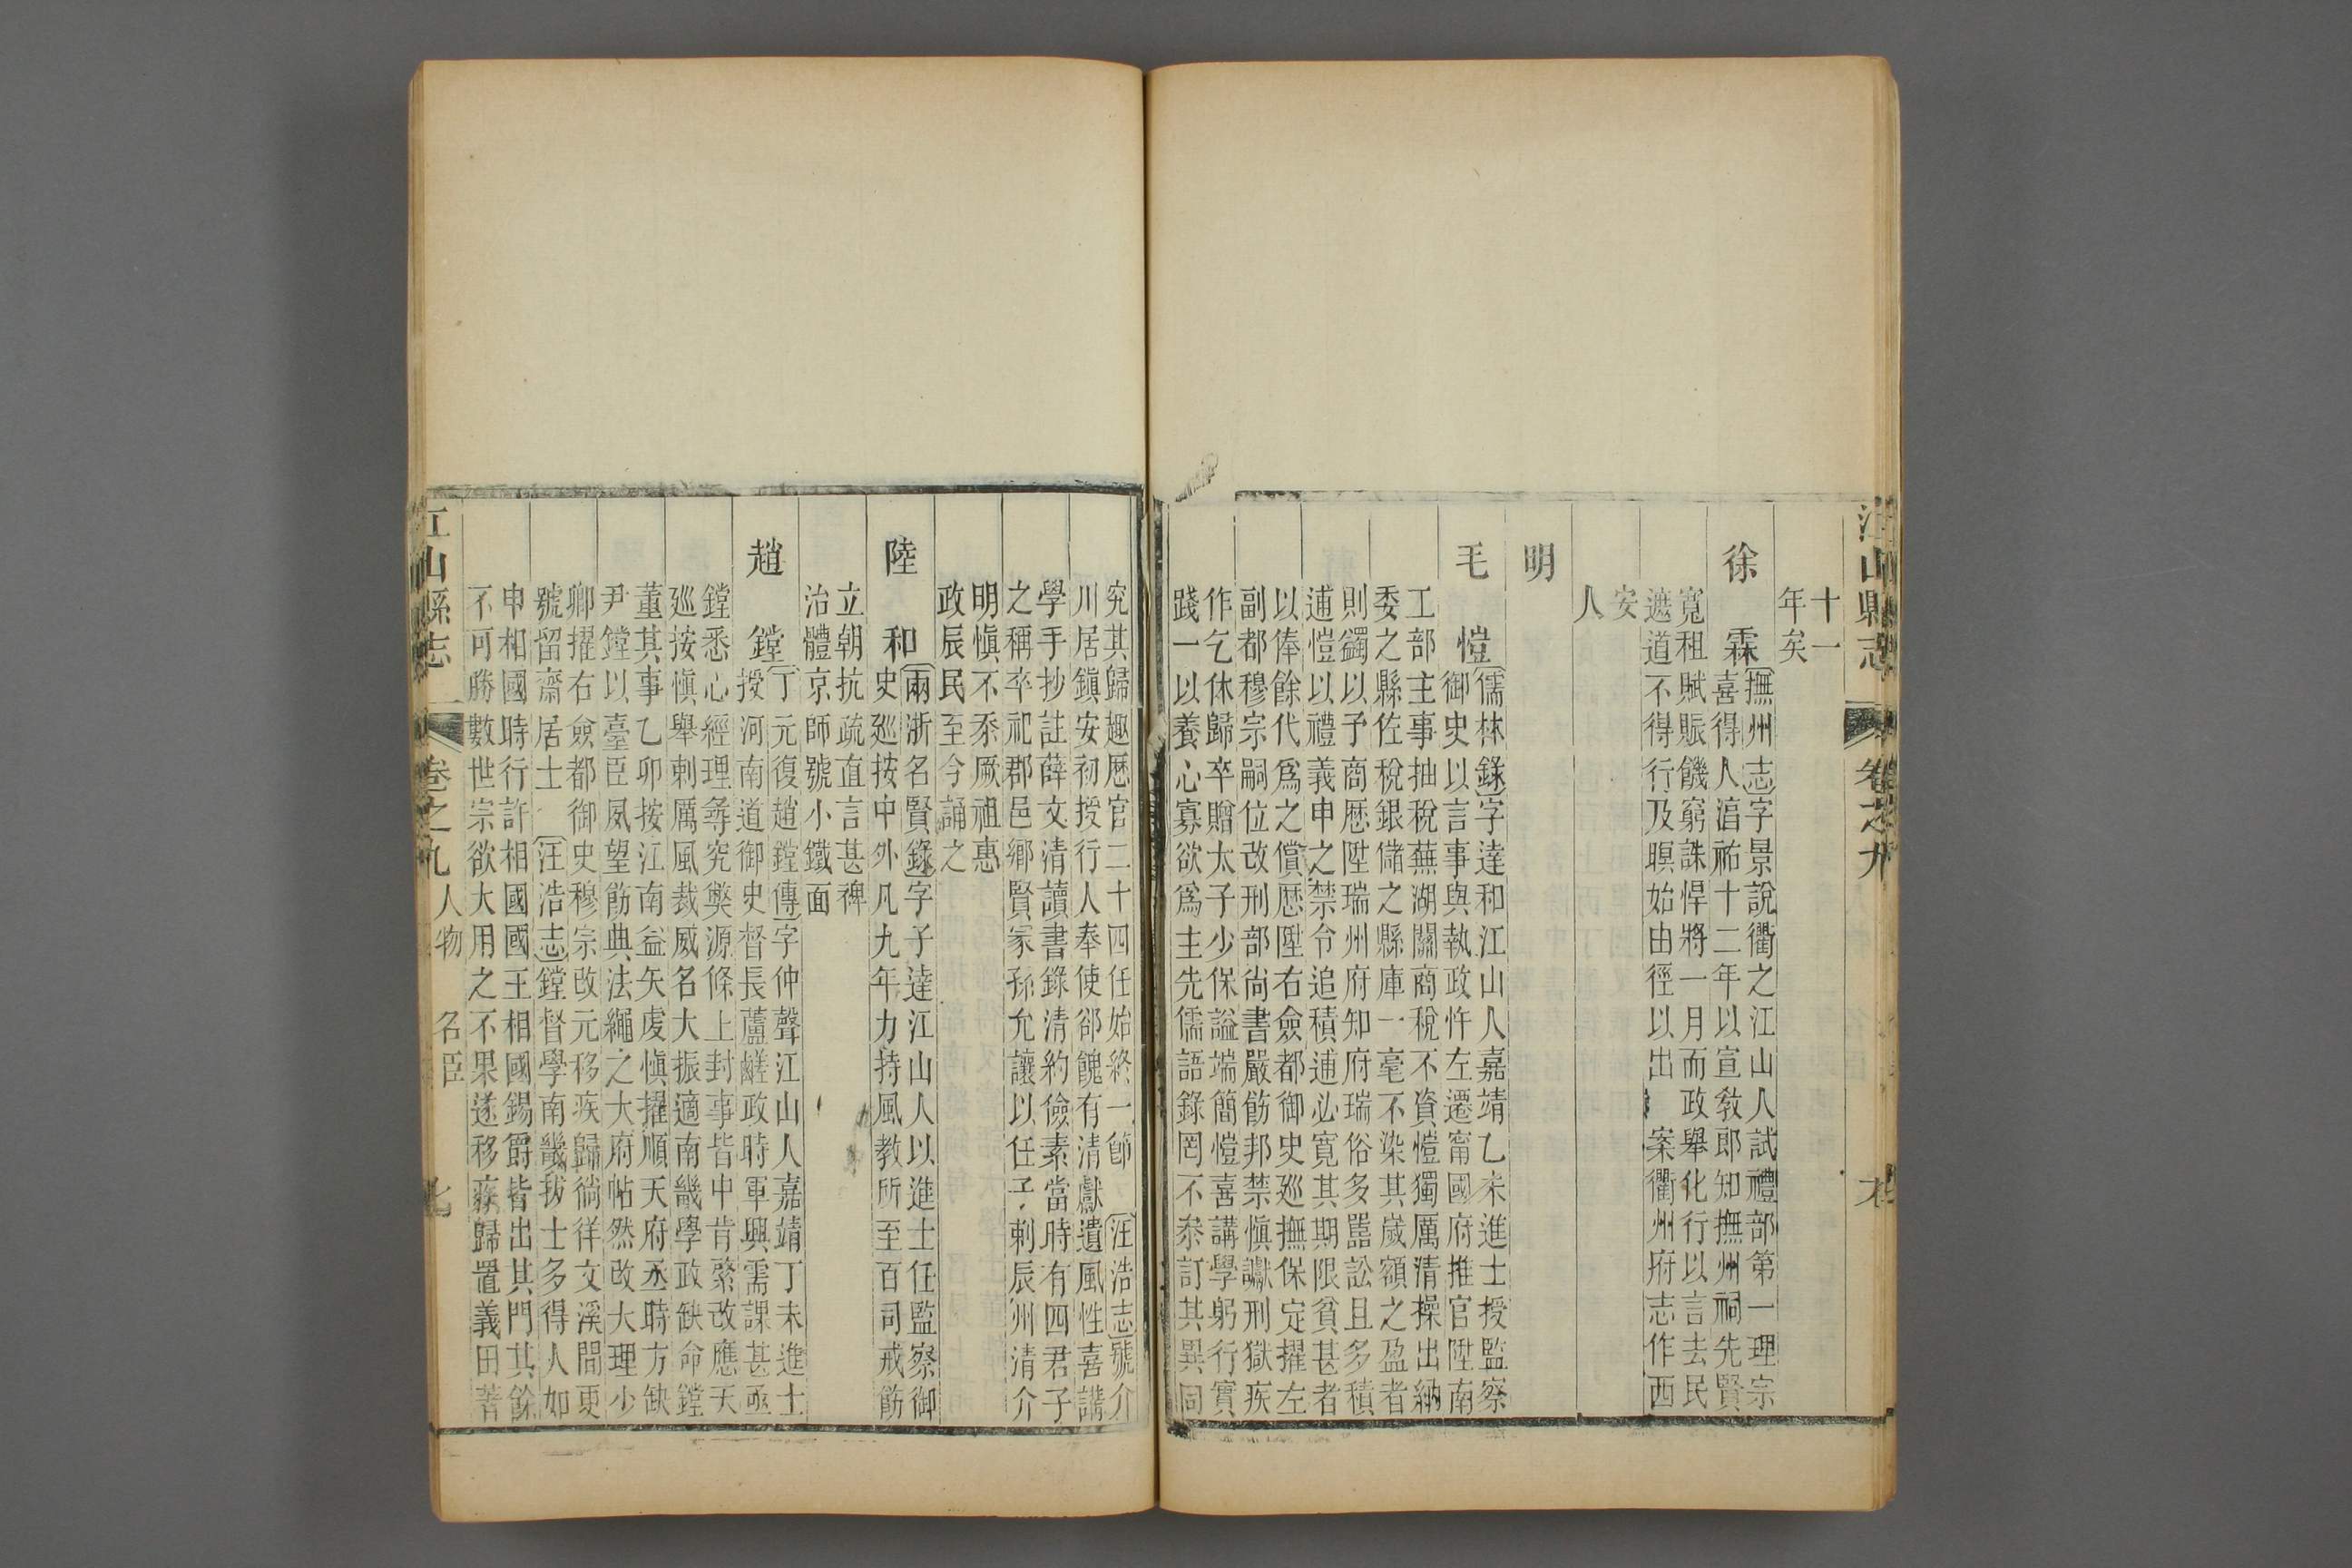 江山縣志 卷之九
十一
年矣
徐霖
撫州志字景說衢之江山人試禮部第一理宗
喜得人淳祐十二年以宣敎郎知撫州祠先賢
寬租賦賑饑窮誅悍將一月而政舉化行以言去民
遮道不得行及暝始由徑以出 案衢州府志作西
安
人
明
毛愷
儒林錄字達和江山人嘉靖乙未進士授監察
御史以言事與執政忤左遷甯國府推官陞南
工部主事抽稅蕪湖關商稅不資愷獨厲清操出納
委之縣佐稅銀儲之縣庫一毫不染其歲額之盈者
則蠲以予商歷陞瑞州府知府瑞俗多嚚訟且多積
逋愷以禮義申之禁令追積逋必寬其期限貧甚者
以俸餘代爲之償歷陞右僉都御史廵撫保定擢左
副都穆宗嗣位改刑部尙書嚴飭邦禁愼讞刑獄疾
作乞休歸卒贈太子少保謚端簡愷喜講學躬行實
踐一以養心寡欲爲主先儒語錄罔不叅訂其異同
究其歸趣歷官二十四任始終一節 汪浩志號介
川居鎭安初授行人奉使郤餽有清獻遺風性喜講
學手抄註薛文清讀書錄清約儉素當時有四君子
之稱卒祀郡邑鄉賢家孫允讓以任子刺辰州清介
明愼不忝厥祖惠
政辰民至今誦之
陸和
兩浙名賢錄字子達江山人以進士任監察御
史廵按中外凡九年力持風教所至百司戒飭
立朝抗疏直言甚裨
治體京師號小鐵面
趙鏜
丁元復趙鏜傳字仲聲江山人嘉靖丁未進士
授河南道御史督長蘆鹺政時軍興需課甚亟
鏜悉心經理蕁究獘源條上封事皆中肯綮改應天
廵按愼舉刺厲風裁威名大振適南畿學政缺命鏜
董其事乙卯按江南益矢虔愼擢順天府丞時方缺
尹鏜以臺臣夙望飭典法繩之大府帖然改大理少
卿擢右僉都御史穆宗改元移疾歸徜徉文溪間更
號留齋居士 汪浩志鏜督學南畿拔士多得人如
申相國時行許相國國王相國錫爵皆出其門其餘
不可勝數世宗欲大用之不果遂移疾歸置義田著
江山縣志 卷之九 人物 名臣 七